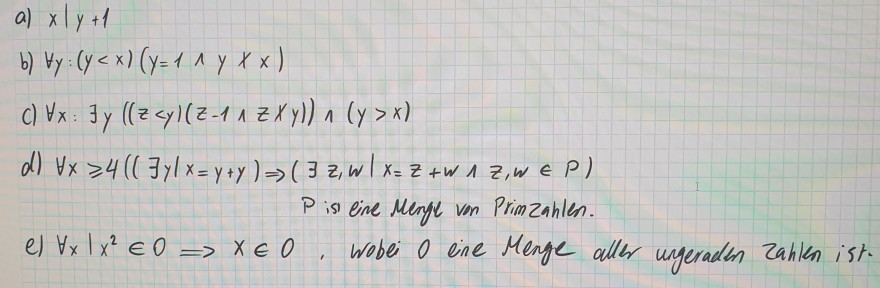 a) x|y+1
b) ∀y:(y<x)(y=1 ∧ y∤x)
c) ∀x: ∃y ((z<y)(z-1 ∧ z∤y)) ∧ (y>x)
d) ∀x ≥4((∃y|x=y+y)⇒(∃ z,w | x= z+w ∧ z,w ∈ P)
P ist eine Menge von Primzahlen.
e) ∀x | x² ∈ O ⟹ x ∈ O , wobei O eine Menge aller ungeraden Zahlen ist.